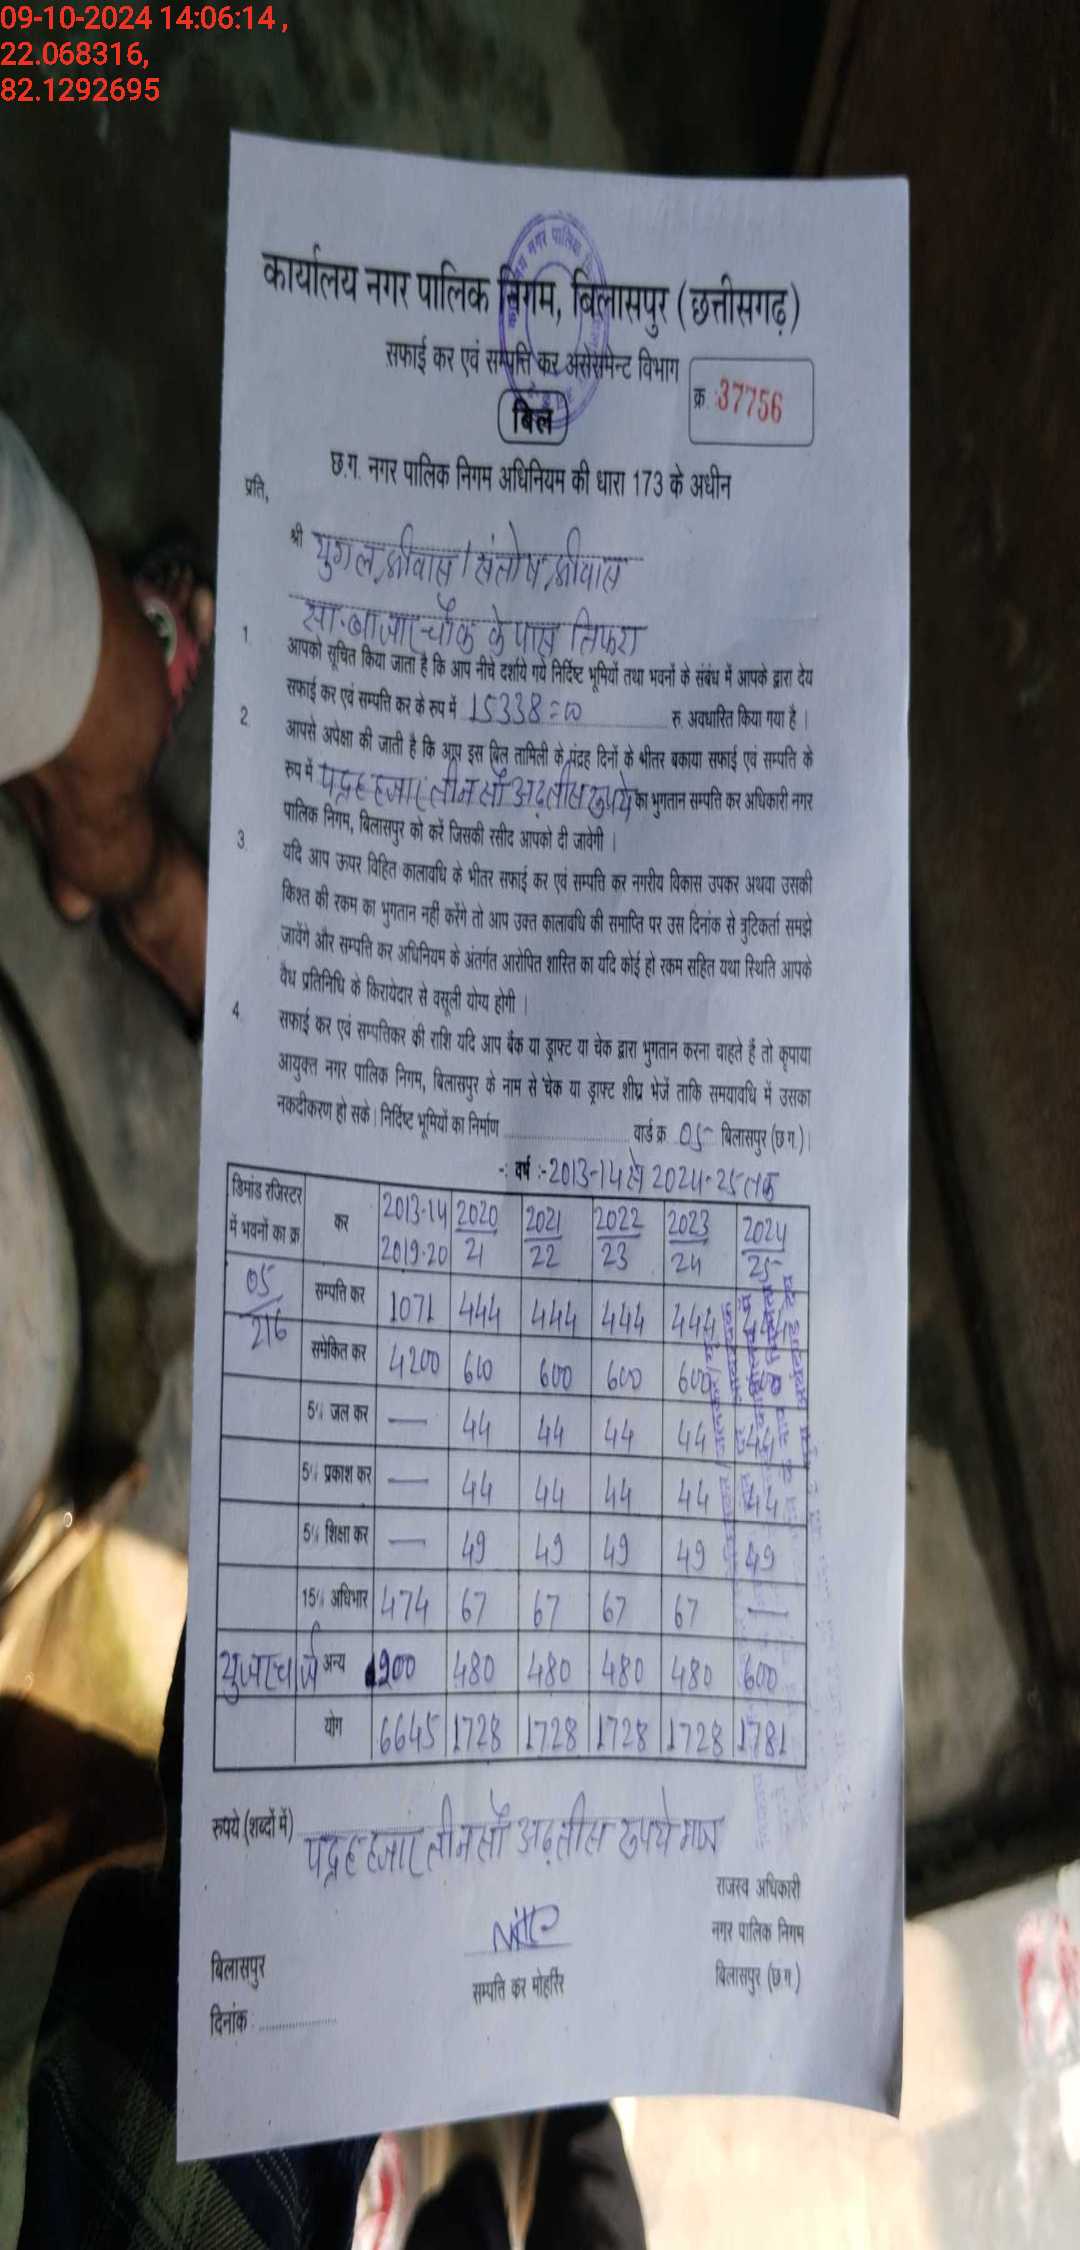 09-10-2024 14:06:14 ,
22.068316,
82.1292695
कार्यालय नगर पालिक निगम, बिलासपुर (छत्तीसगढ़)
सफाई कर एवं सम्पत्ति कर असेसमेन्ट विभाग
क्र. 37756
बिल
छ.ग. नगर पालिक निगम अधिनियम की धारा 173 के अधीन
प्रति,
श्री युगल श्रीवास / संतोष श्रीवास
सा. बाजार चौक के पास तिफरा
1. आपको सूचित किया जाता है कि आप नीचे दर्शाये गये निर्दिष्ट भूमियों तथा भवनों के संबंध में आपके द्वारा देय
सफाई कर एवं सम्पत्ति कर के रुप में 15338=00 रु. अवधारित किया गया है ।
2. आपसे अपेक्षा की जाती है कि आप इस बिल तामिली के पंद्रह दिनों के भीतर बकाया सफाई एवं सम्पति के
रुप में पंद्रह हजार तीन सौ अड़तीस रुपये का भुगतान सम्पति कर अधिकारी नगर
पालिक निगम, बिलासपुर को करें जिसकी रसीद आपको दी जावेगी ।
3. यदि आप ऊपर विहित कालावधि के भीतर सफाई कर एवं सम्पत्ति कर नगरीय विकास उपकर अथवा उसकी
किश्त की रकम का भुगतान नहीं करेंगे तो आप उक्त कालावधि की समाप्ति पर उस दिनांक से त्रुटिकर्ता समझे
जावेंगे और सम्पति कर अधिनियम के अंतर्गत आरोपित शास्ति का यदि कोई हो रकम सहित यथा स्थिति आपके
वैध प्रतिनिधि के किरायेदार से वसूली योग्य होगी ।
4. सफाई कर एवं सम्पत्तिकर की राशि यदि आप बैंक या ड्राफ्ट या चेक द्वारा भुगतान करना चाहते हैं तो कृपाया
आयुक्त नगर पालिक निगम, बिलासपुर के नाम से चेक या ड्राफ्ट शीघ्र भेजें ताकि समयावधि में उसका
नकदीकरण हो सके। निर्दिष्ट भूमियों का निर्माण वार्ड क्र. 05 बिलासपुर (छ.ग.)।
-: वर्ष :- 2013-14 से 2024-25 तक
डिमांड रजिस्टर में भवनों का क्र. कर 2013-14 2019-20 2020/21 2021/22 2022/23 2023/24 2024/25
05/216 सम्पत्ति कर 1071 444 444 444 444 444
समेकित कर 4200 600 600 600 600
5% जल कर — 44 44 44 44 44
5% प्रकाश कर — 44 44 44 44 44
5% शिक्षा कर — 49 49 49 49 49
15% अधिभार 474 67 67 67 67 —
युजर चार्ज अन्य 900 480 480 480 480 600
योग 6645 1728 1728 1728 1728 1781
रुपये (शब्दों में) पंद्रह हजार तीन सौ अड़तीस रुपये मात्र
राजस्व अधिकारी
नगर पालिक निगम
बिलासपुर (छ.ग.)
सम्पत्ति कर मोहर्रिर
बिलासपुर
दिनांक